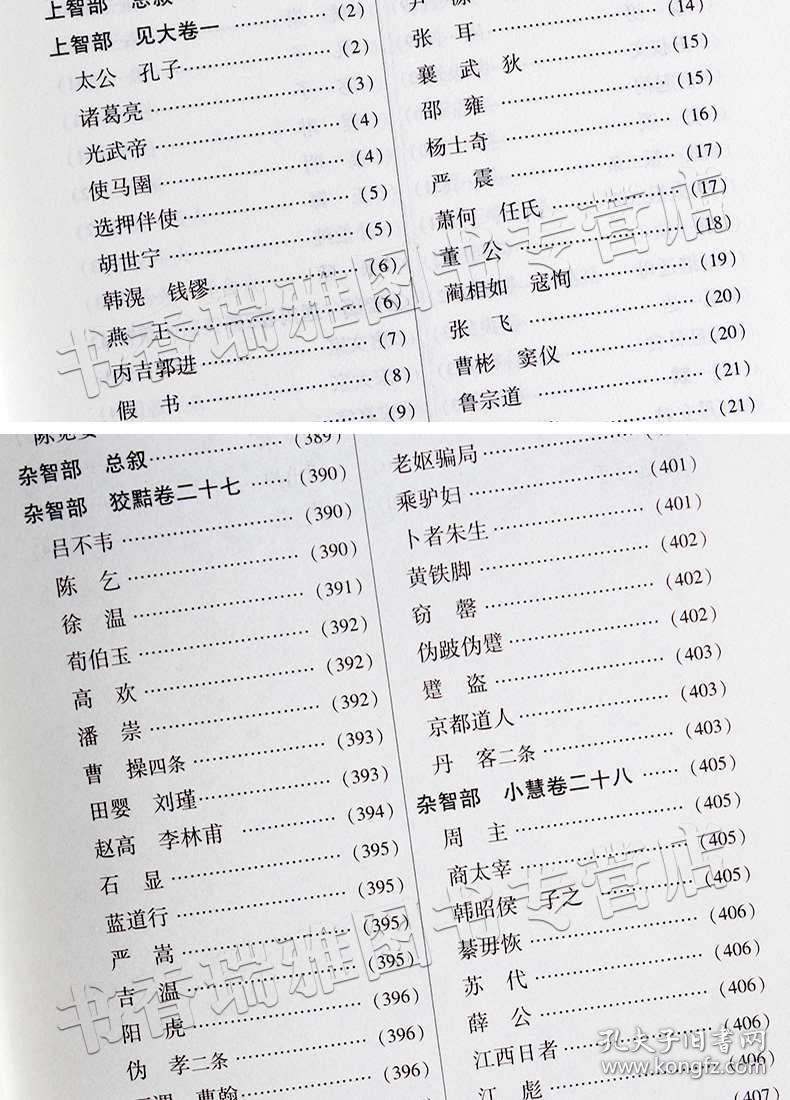 上智部 见大卷一……(2)
太公 孔子……(2)
诸葛亮……(3)
光武帝……(4)
使马圉……(4)
选押伴使……(5)
胡世宁……(5)
韩滉 钱镠……(6)
燕 王……(6)
丙吉郭进……(7)
假 书……(8)
(9)
张 耳……(14)
襄 武 狄……(15)
邵 雍……(15)
杨士奇……(16)
严 震……(17)
萧何 任氏……(17)
董 公……(18)
蔺相如 寇恂……(19)
张 飞……(20)
曹彬 窦仪……(20)
鲁宗道……(21)
(21)
杂智部 总叙……(389)
杂智部 狡黠卷二十七……(390)
吕不韦……(390)
陈 乞……(390)
徐 温……(391)
荀伯玉……(392)
高 欢……(392)
潘 崇……(392)
曹 操四条……(393)
田婴 刘瑾……(393)
赵高 李林甫……(394)
石 显……(395)
蓝道行……(395)
严 嵩……(395)
吉 温……(395)
阳 虎……(396)
伪 孝二条……(396)
曹翰……(396)
老妪骗局
乘驴妇……(401)
卜者朱生……(401)
黄铁脚……(402)
窃 磬……(402)
伪跛伪躄……(402)
躄 盗……(403)
京都道人……(403)
丹 客二条……(403)
杂智部 小慧卷二十八……(405)
周 主……(405)
商太宰……(405)
韩昭侯 子之……(405)
綦毋恢……(406)
苏 代……(406)
薛 公……(406)
江西日者……(406)
江 彪……(406)
(407)
书香瑞雅图书专营店
书香瑞雅图书专营店
孔夫子旧书网
www.kongfz.com